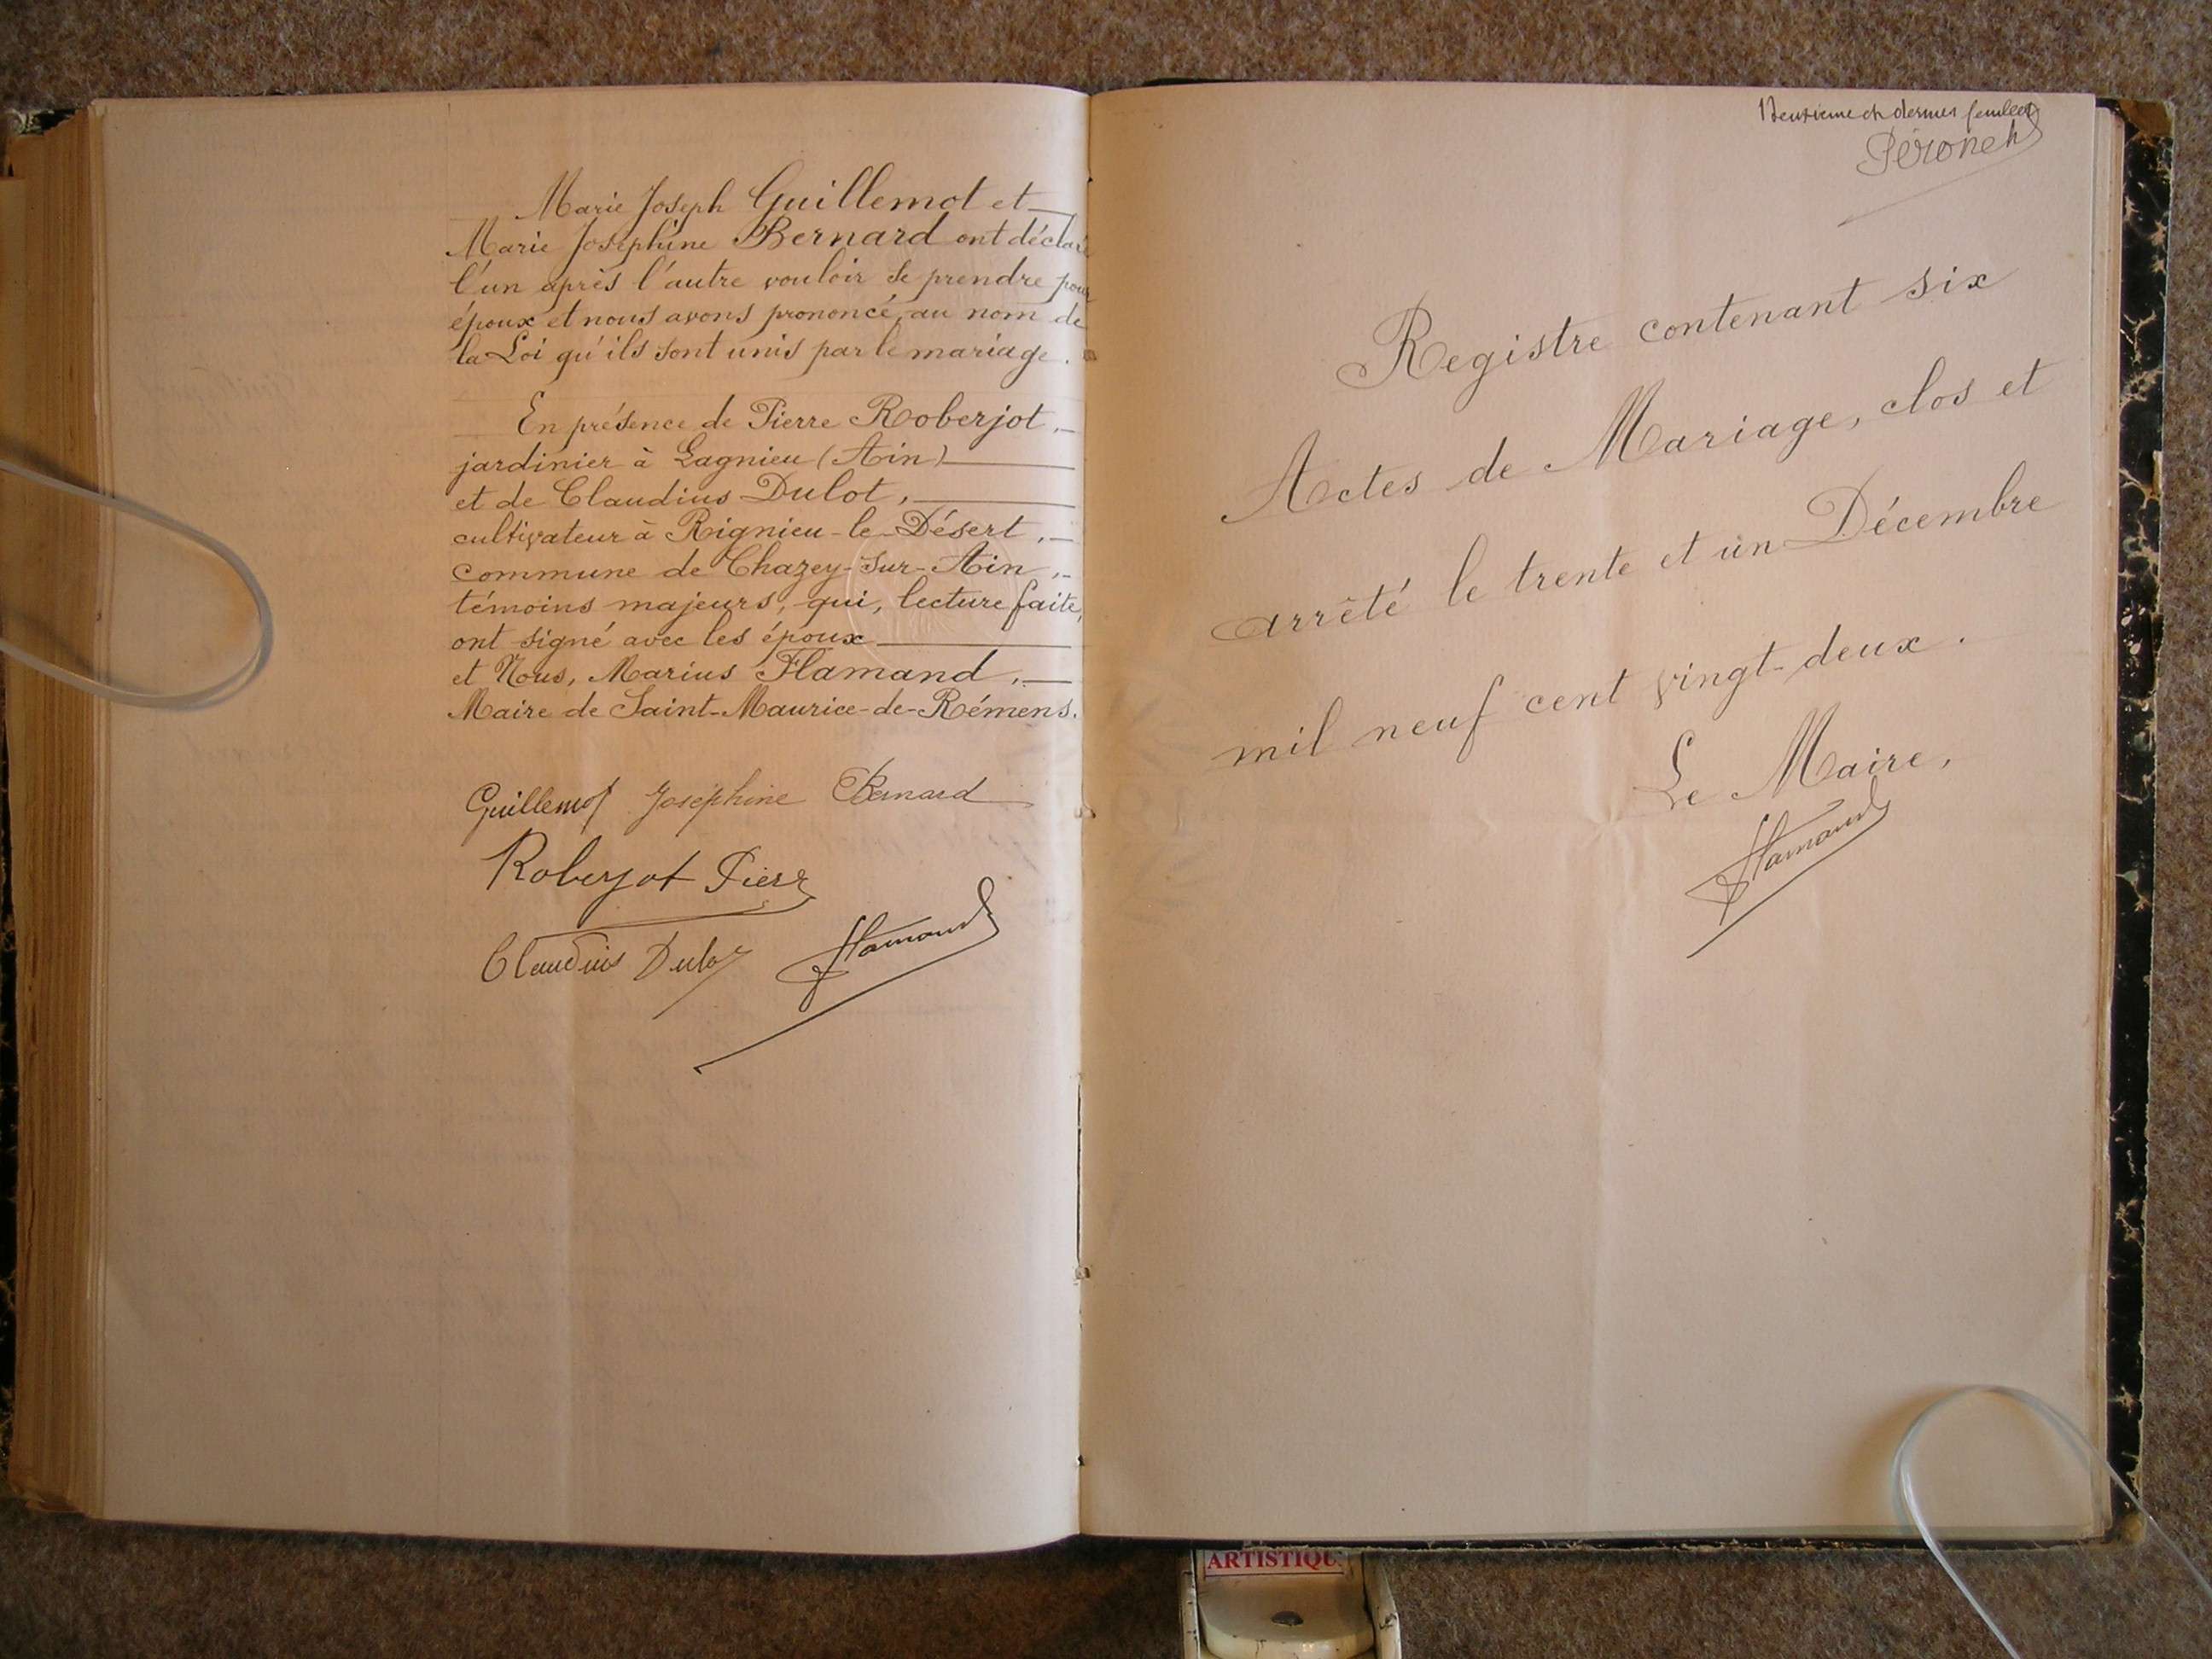 Marie Joseph Guillemot et
Marie Joséphine Bernard ont déclaré
l'un après l'autre vouloir se prendre pour
époux et nous avons prononcé, au nom de
la Loi qu'ils sont unis par le mariage.
En présence de Pierre Roberjot,
jardinier à Lagnieu (Ain)
et de Claudius Dulot,
cultivateur à Rignieu-le-Désert,
commune de Chazey-sur-Ain,
témoins majeurs, qui, lecture faite,
ont signé avec les époux
et Nous, Marius Flamand,
Maire de Saint-Maurice-de-Rémens.
Guillemot Josephine Bernard
Roberjot Pierre
Claudius Dulot Flamand
Deuxième et dernier feuillet
Registre contenant six
Actes de Mariage, clos et
arrêté le trente et un Décembre
mil neuf cent vingt-deux.
Le Maire,
Flamand
ARTISTIQU